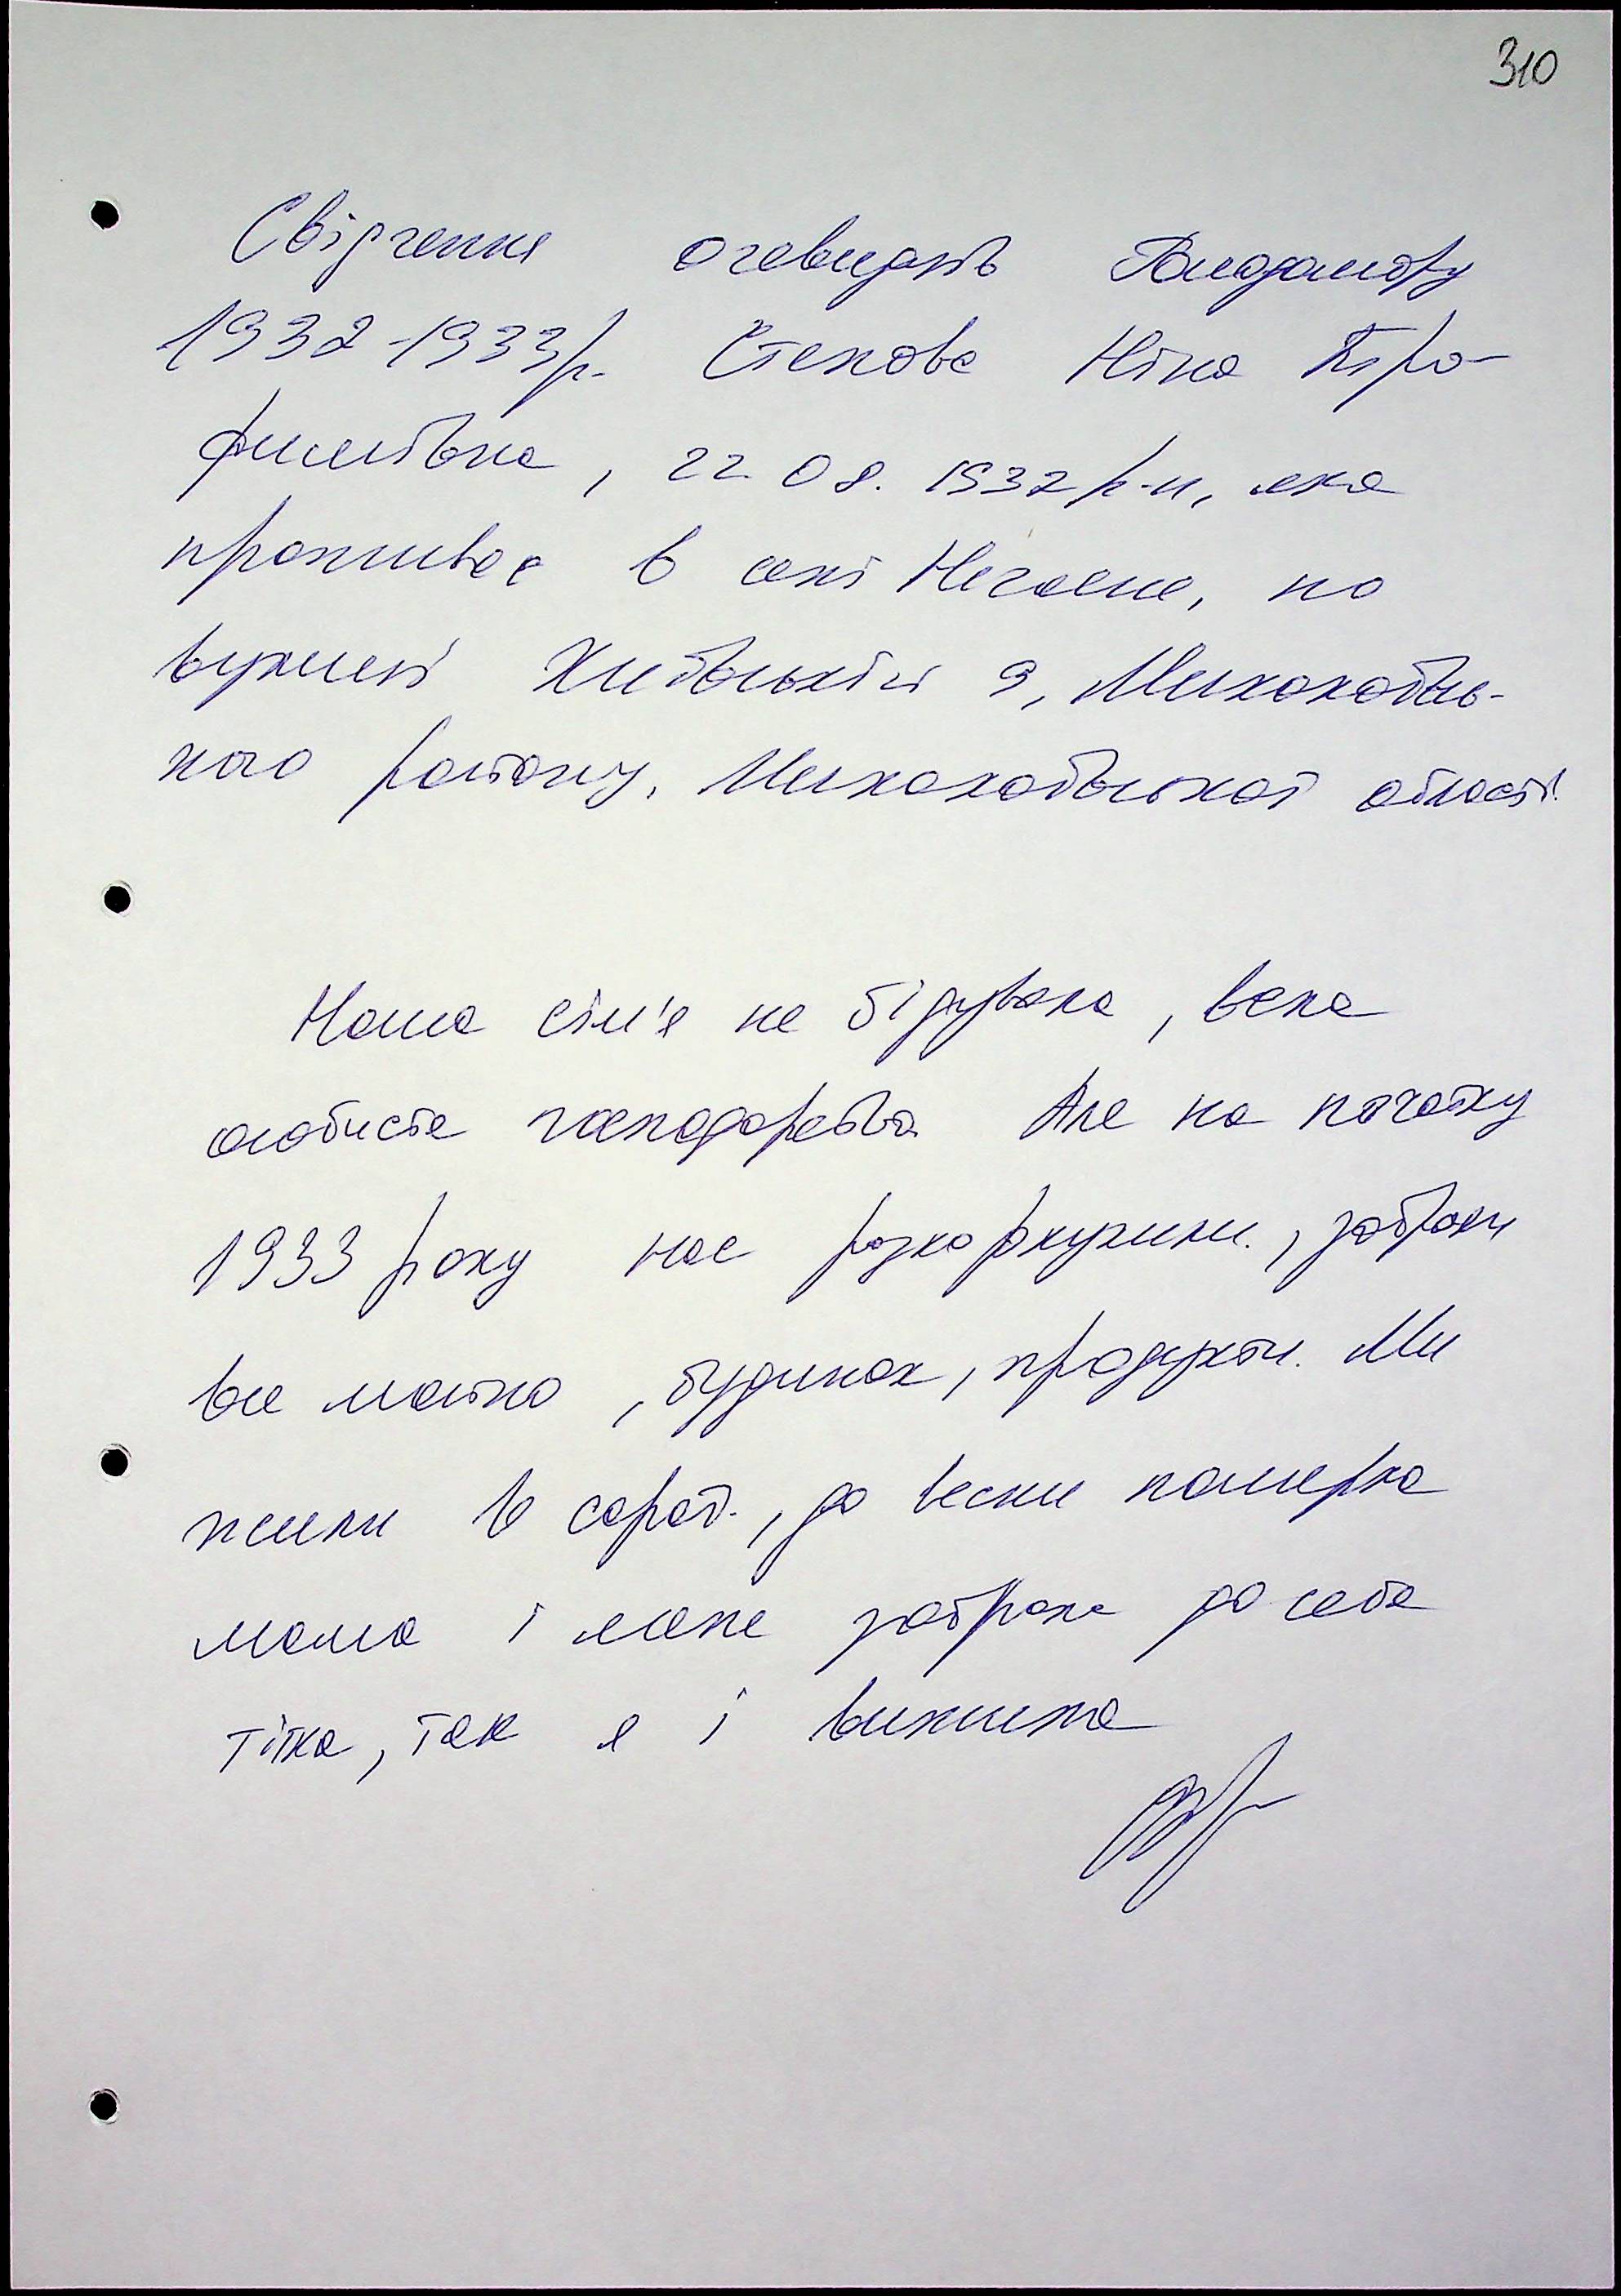 310
Свідчення очевидців Голодомору
1932-1933р. Степова Ніна Тро-
фимівна, 22.08.1932 р-н, яка
проживає в селі Нечаяне, по
вулиці 9, Миколаївсь-
кого району, Миколаївської області.
Наша сім'я не бідувала, вела
особисте господарство. Але на початку
1933 року нас розкуркулили, забрали
все майно, будинок, продукти. Ми
жили в сараї, до весни померла
мама і мене забрала до себе
тітка, так я і вижила